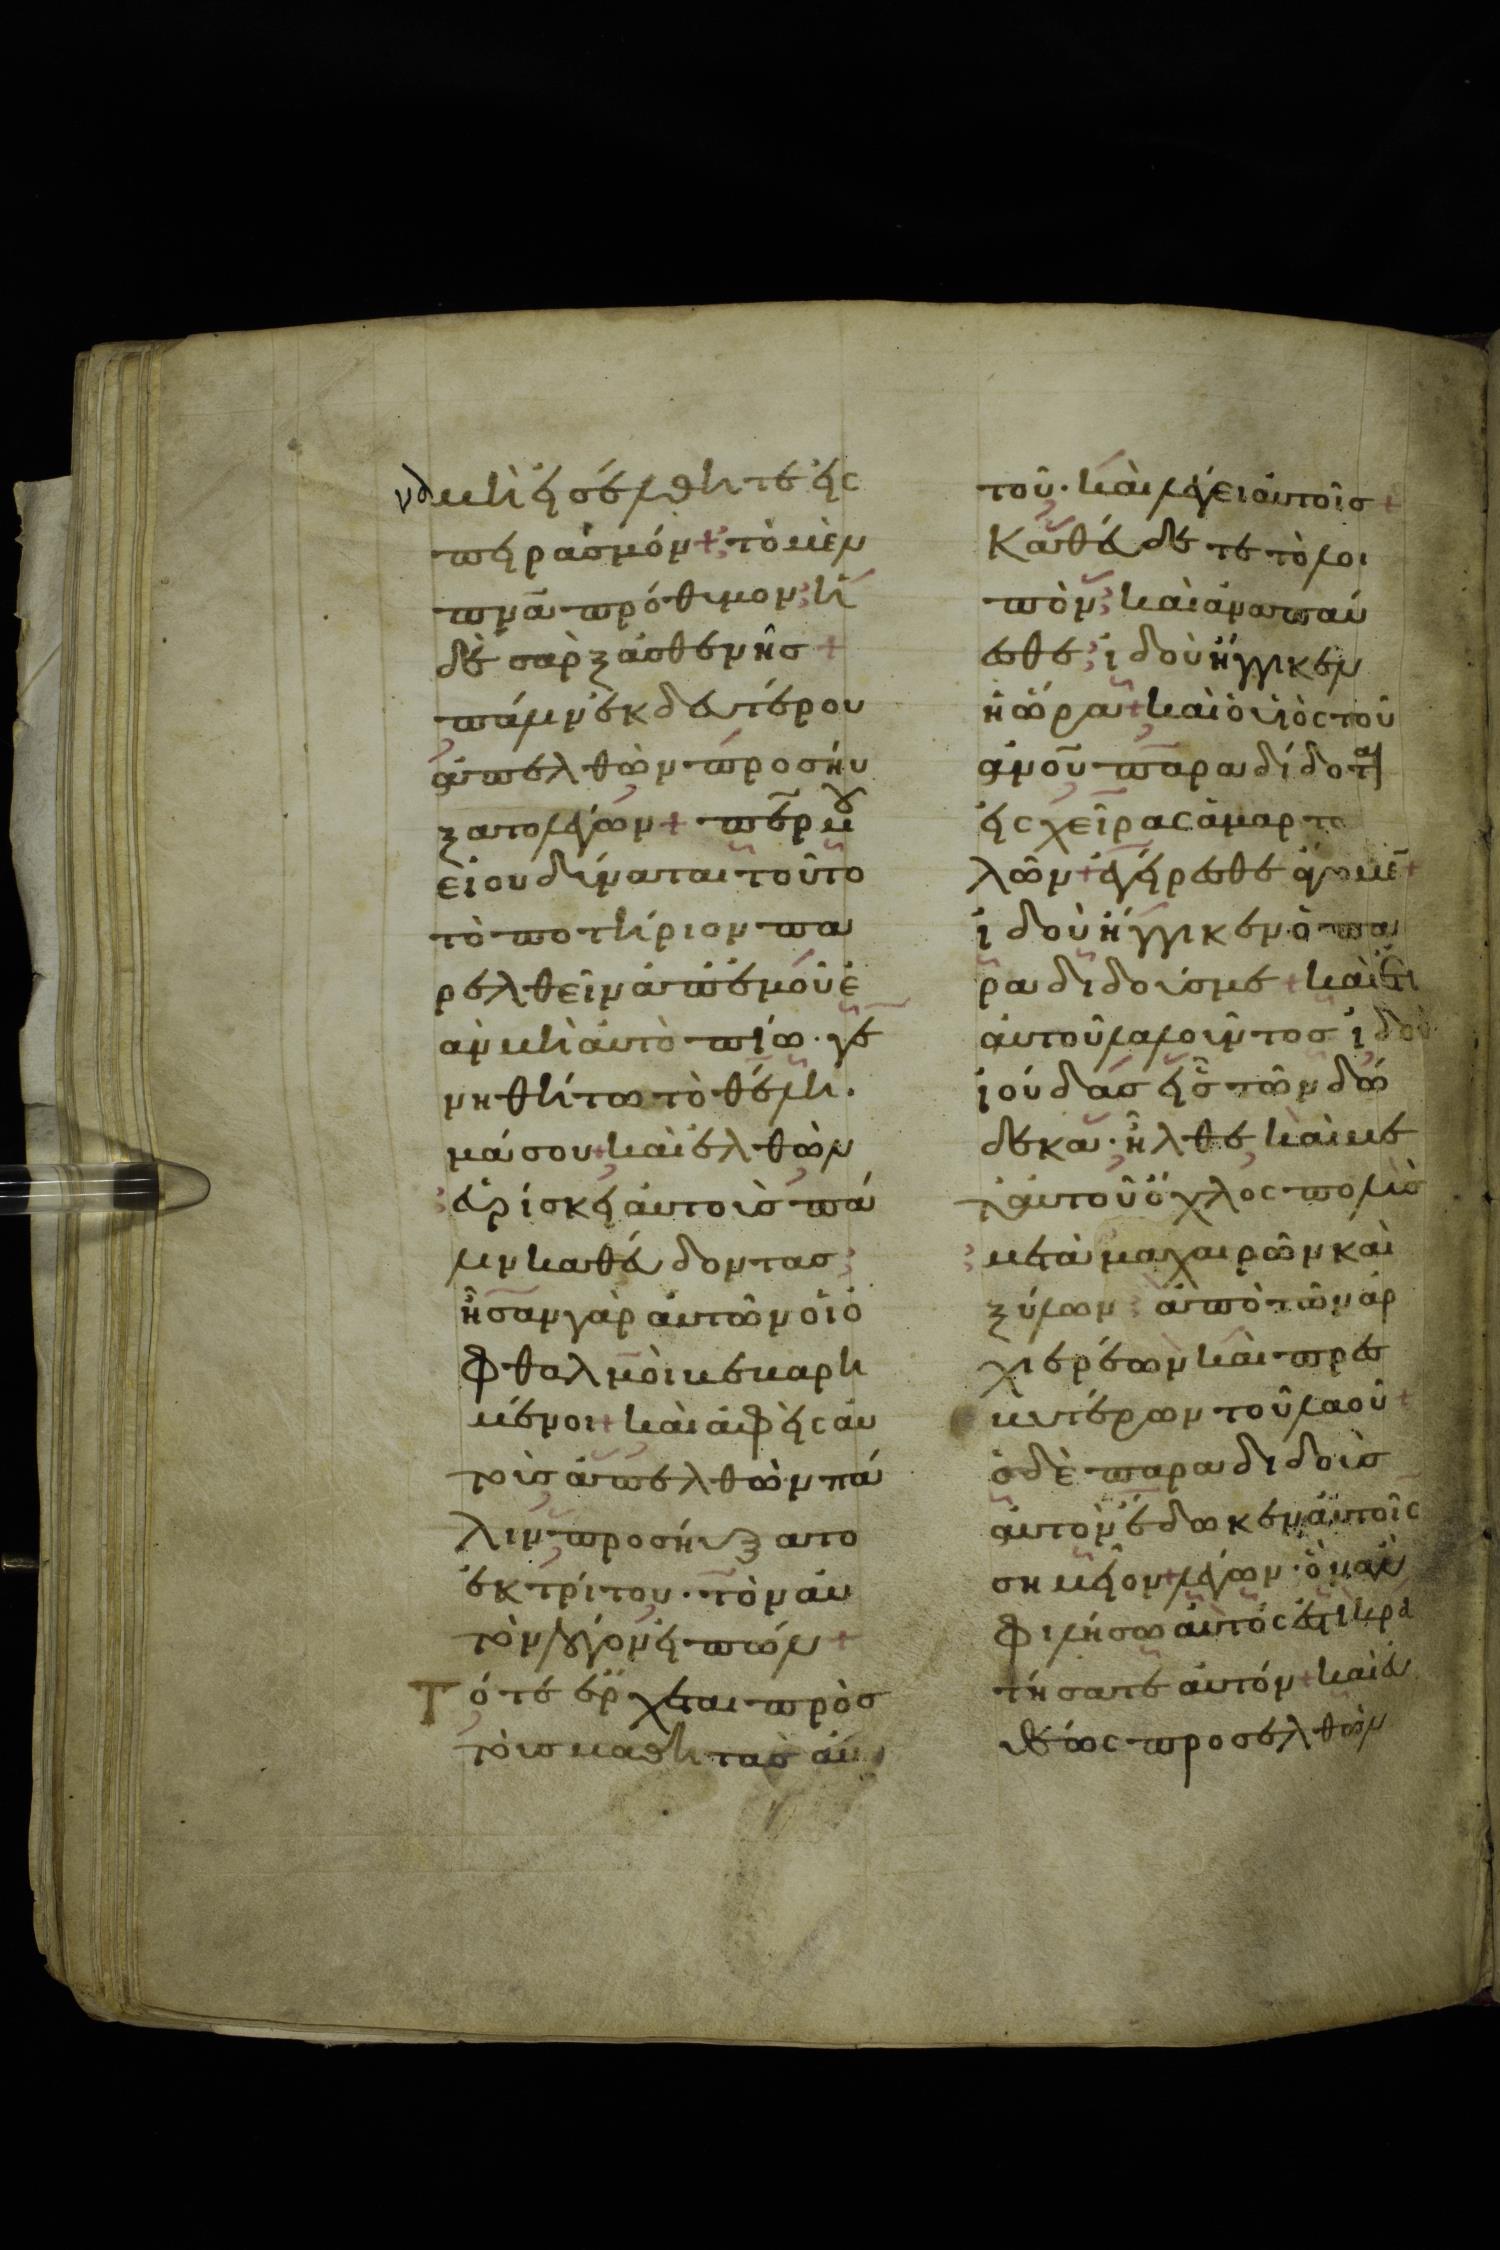 μὴ εἰσέλθητε εἰς
πειρασμόν + τὸ μὲν
πνᾶ πρόθυμον· ἡ
δὲ σὰρξ ἀσθενῆσ +
πάλιν ἐκ δευτέρου
ἀπελθὼν προσηύ
ξατο λέγων + περ μου
εἰ οὐ δύναται τοῦτο
τὸ ποτήριον πα
ρελθεῖν ἀπ' ἐμοῦ ἐ
ὰν μὴ αὐτὸ πίω· γε
νηθήτω τὸ θέλη
μά σου + καὶ ἐλθὼν
εὑρίσκει αὐτοὺσ πά
λιν καθεύδοντασ
ἦσαν γὰρ αὐτῶν οἱ ὀ
φθαλμοὶ βεβαρη
μένοι + καὶ ἀφεὶς αὐ
τοὺσ ἀπελθὼν πά
λιν προσηύξατο
ἐκ τρίτου· τὸν αὐ
τὸν λόγον εἰπών +
Τότε ἔρχεται πρὸσ
τοὺσ μαθητὰσ αὐ
τοῦ· καὶ λέγει αὐτοῖσ +
Καθεύδετε τὸ λοι
πὸν· καὶ ἀναπαύ
εσθε· ἰδοὺ ἤγγικεν
ἡ ὥρα + καὶ ὁ υἱὸς τοῦ
ἀνοῦ παραδίδοται
εἰς χεῖρας ἁμαρτω
λῶν + ἐγείρεσθε ἄγωμεν +
ἰδοὺ ἤγγικεν ὁ πα
ραδιδούσ με + καὶ ἔτι
αὐτοῦ λαλοῦντοσ ἰδοὺ
ἰούδασ εἷσ τῶν δώ
δεκα· ἦλθε καὶ με
τ' αὐτοῦ ὄχλος πολὺσ
μετὰ μαχαιρῶν καὶ
ξύλων ἀπὸ τῶν ἀρ
χιερέων καὶ πρεσ
βυτέρων τοῦ λαοῦ +
ὁ δὲ παραδιδοὺσ
αὐτὸν ἔδωκεν αὐτοῖς
σημεῖον λέγων· ὃν ἂν
φιλήσω αὐτός ἐστι κρα
τήσατε αὐτόν + καὶ εὐ
θέως προσελθὼν